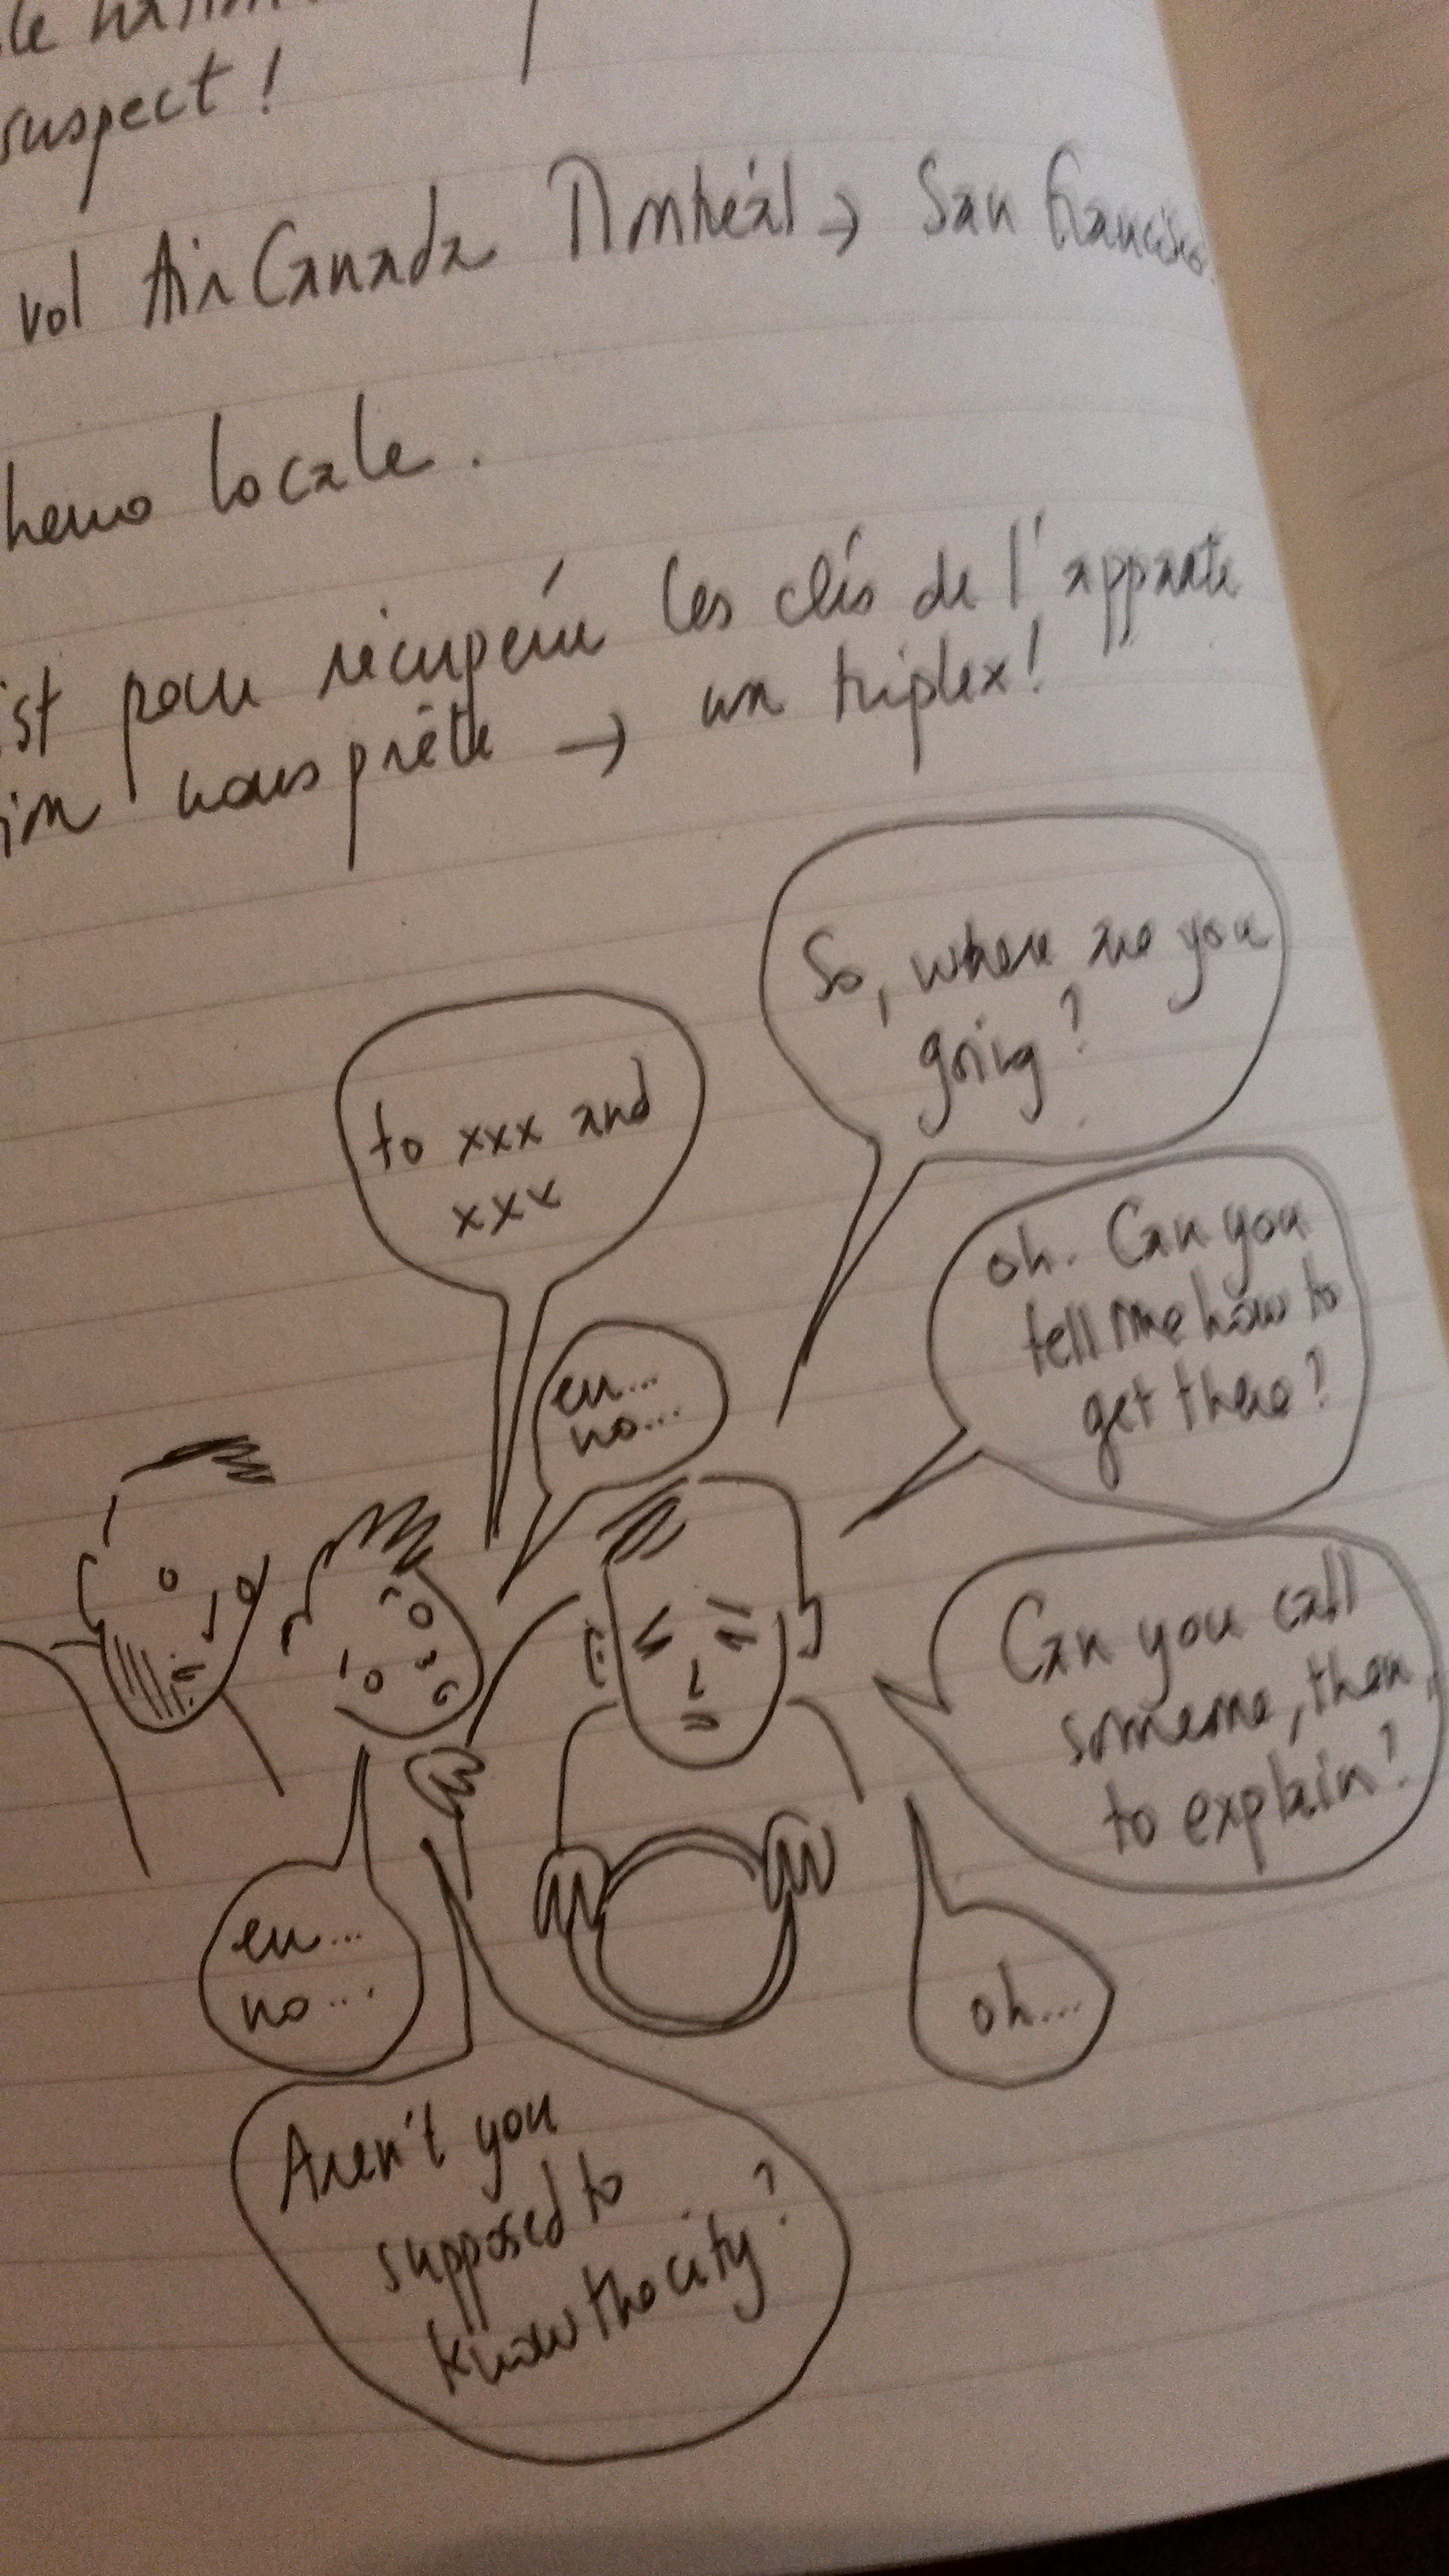 suspect !
vol Air Canada Montréal → San Francisco
locale .
pour récupérer les clés de l'apparte
nous prête → un triplex !
So, where are you
going ?
to xxx and
xxx
oh. Can you
tell me how to
get there ?
eu...
no...
Can you call
someone, then,
to explain ?
eu...
no...
oh...
Aren't you
supposed to
know the city ?